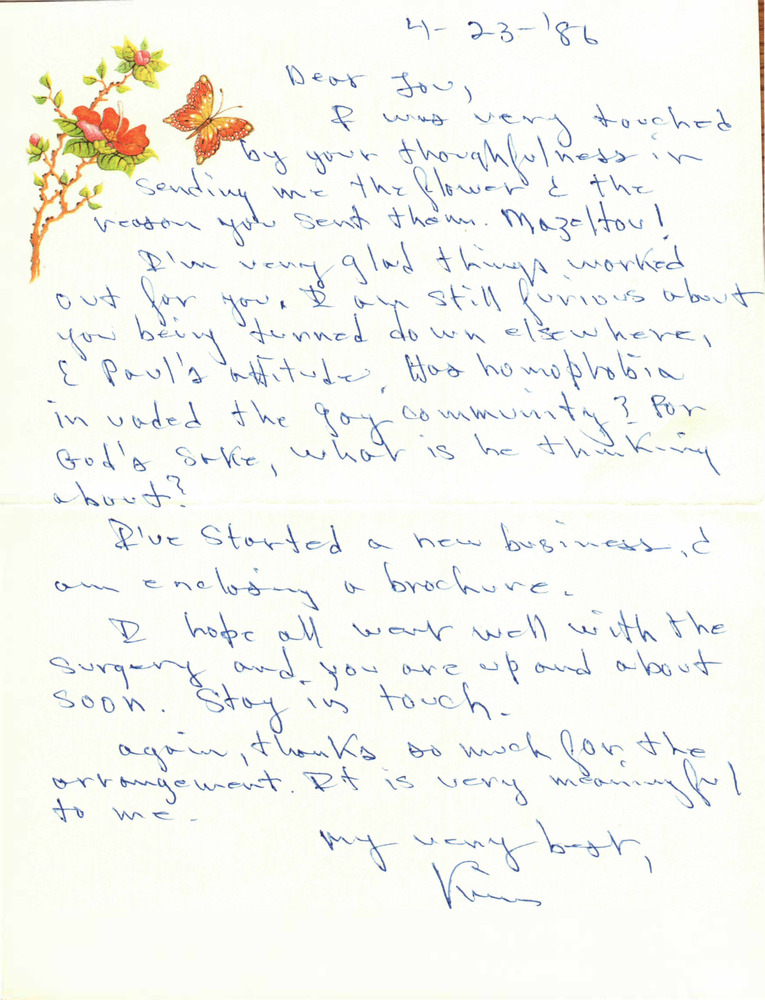 4-23-'86
Dear Lou,
I was very touched
by your thoughfulness in
sending me the flower & the
reason you sent them. Mazeltov!
I'm very glad things worked
out for you. I am still furious about
you being turned down elsewhere,
& Paul's attitude. Has homophobia
invaded the gay community? For
God's sake, what is he thinking
about?
I've started a new business, &
am enclosing a brochure.
I hope all went well with the
surgery and you are up and about
soon. Stay in touch.
again, thanks so much for the
arrangement. It is very meaningful
to me.
my very best,